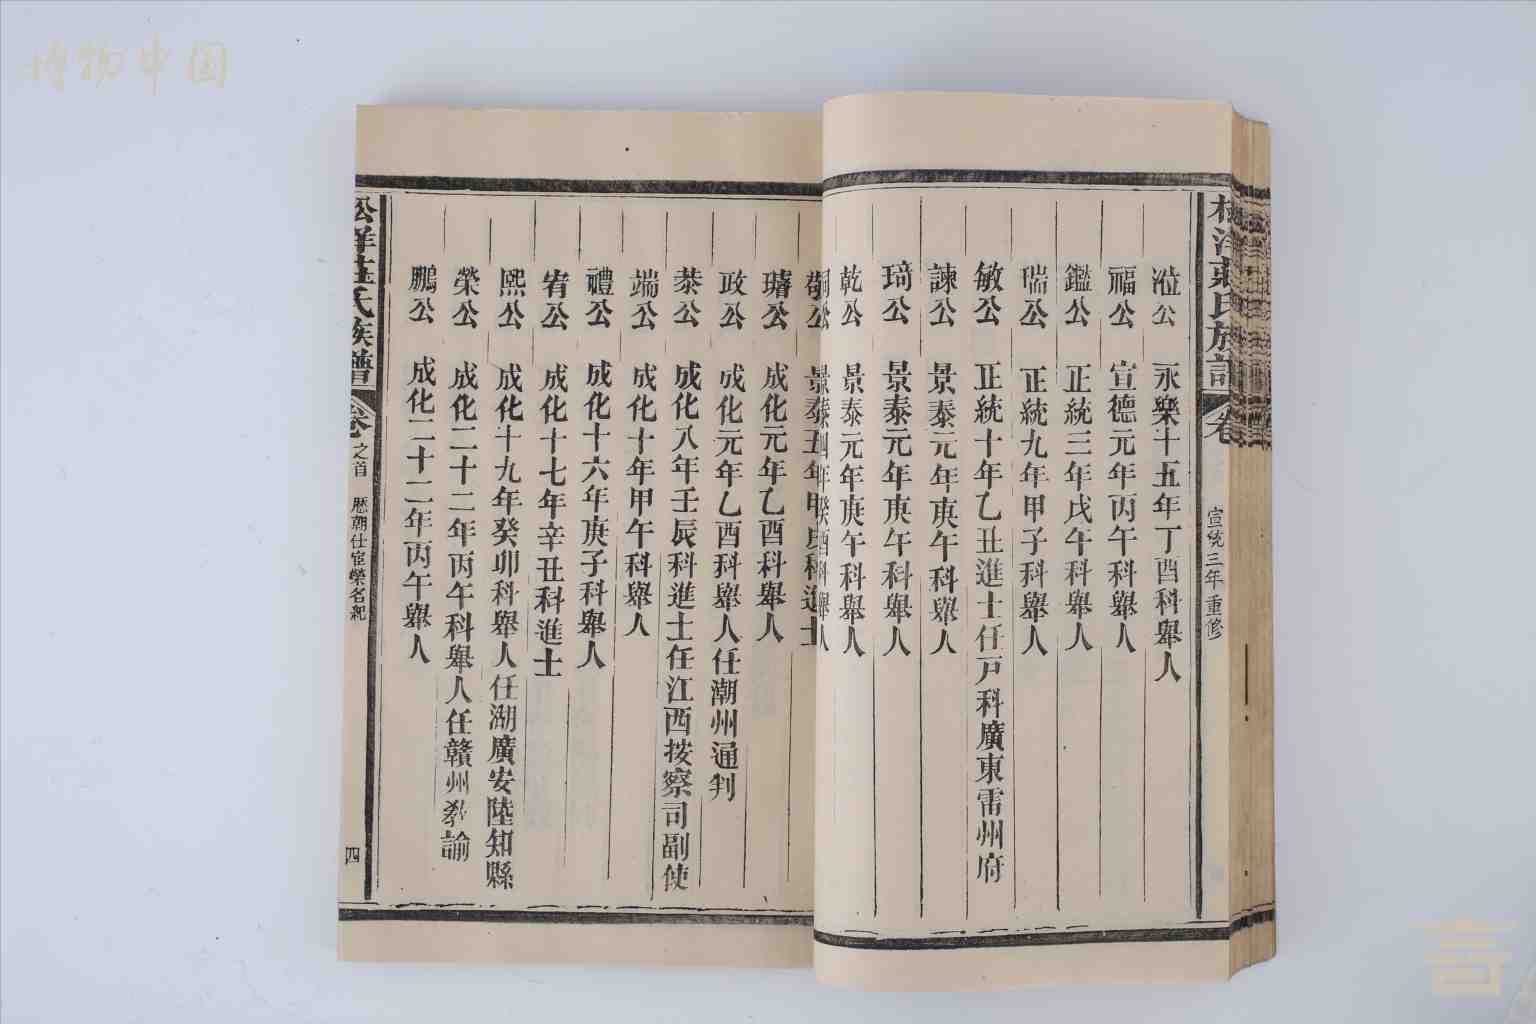 博物中国
宣統三年重修
溢公 永樂十五年丁酉科舉人
福公 宣德元年丙午科舉人
鑑公 正統三年戊午科舉人
瑞公 正統九年甲子科舉人
敏公 正統十年乙丑進士任戸科廣東雷州府
諫公 景泰元年庚午科舉人
琦公 景泰元年庚午科舉人
乾公 景泰元年庚午科舉人
公 景泰四年癸酉科舉人
敬公 景泰五年甲戌科進士
璿公 成化元年乙酉科舉人
政公 成化元年乙酉科舉人任潮州通判
恭公 成化八年壬辰科進士任江西按察司副使
端公 成化十年甲午科舉人
禮公 成化十六年庚子科舉人
宥公 成化十七年辛丑科進士
熙公 成化十九年癸卯科舉人任湖廣安陸知縣
榮公 成化二十二年丙午科舉人任贛州教諭
鵬公 成化二十二年丙午舉人
松洋莊氏族譜 卷之首 歷朝仕宦榮名紀 四
言